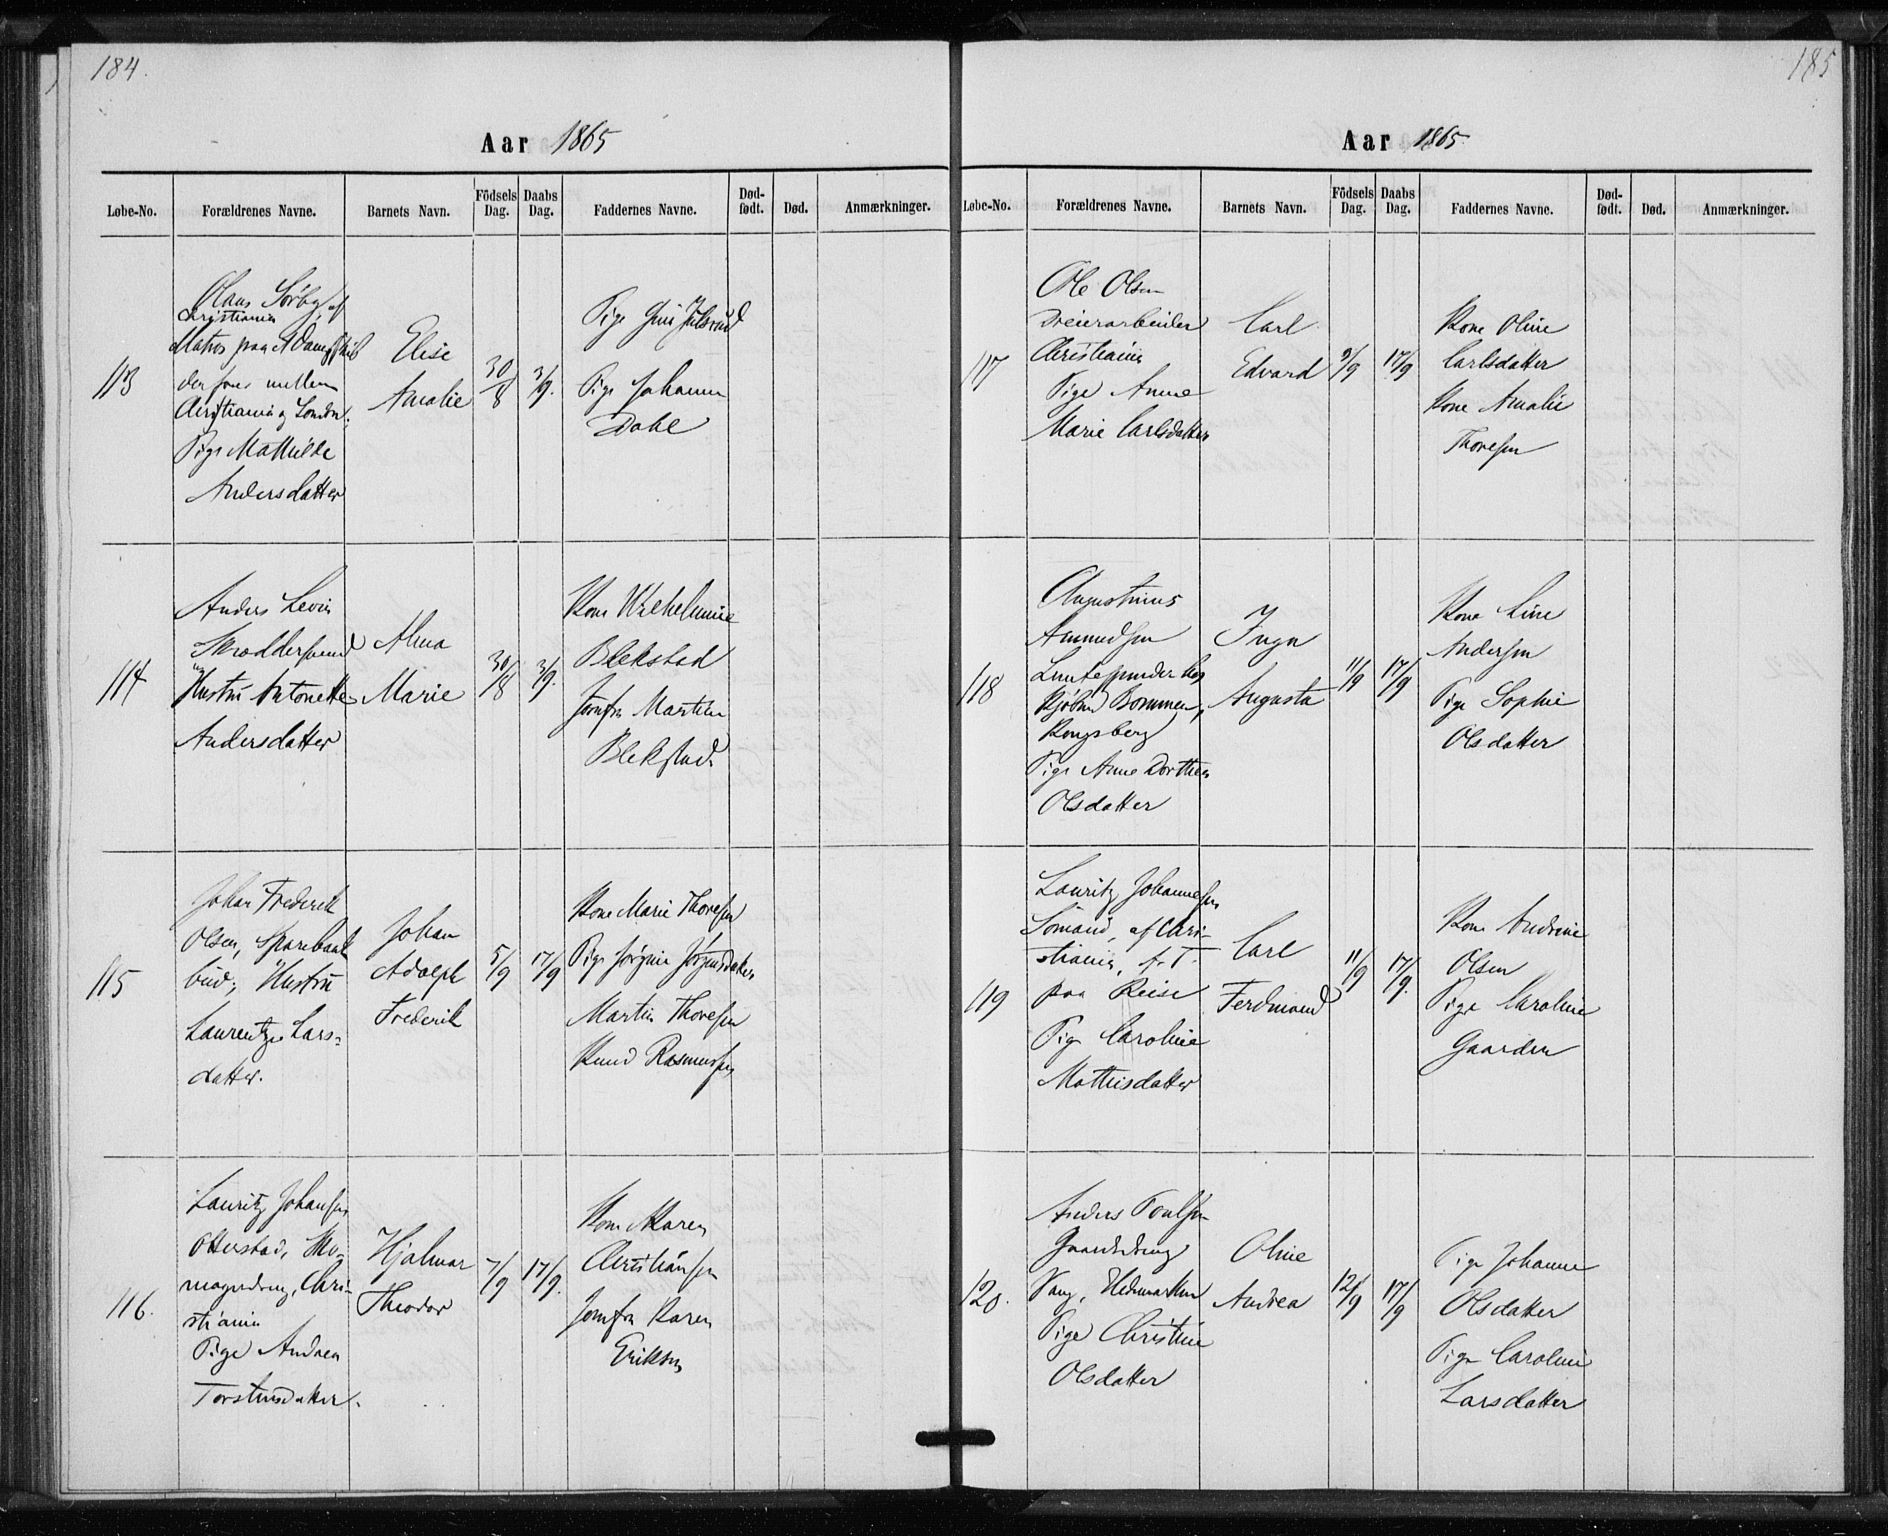 184.
Aar 1865
Løbe-No. Forældrenes Navne. Barnets Navn. Födsels Dag. Daabs Dag. Faddernes Navne. Død-født. Død. Anmærkninger.
113
Olaus Sørby, af
Christiania
Matros paa et Dampskib
der farer mellem
Christiania og London.
Pige Mathilde
Andersdatter
Elise
Amalie
30/8
3/9.
Pige
Pige Johanne
Dahl
114
Anders Levin
Skræddersvend
Hustru Antonette
Andersdatter
Alma
Marie
30/8
3/9.
Kone Wilhelmine
Blekstad
Jomfru Marthe
Blekstad.
115
Johan Frederik
Olsen, Sparebank
bud; Hustru
Laurentze Lars-
datter.
Johan
Adolph
Frederik
5/9
17/9
Kone Marie Thoresen
Pige Jørgine Jørgensdatter
Martin Thoresen
Knud Rasmussen
116.
Lauritz Johansen
Otterstad, Sko-
magerdreng, Chri-
stiania
Pige Andrea
Torstensdatter.
Hjalmar
Theodor
7/9
17/9.
Kone Maren
Christiansen
Jomfru Karen
Eriksen
185
Aar 1865
Løbe-No. Forældrenes Navne. Barnets Navn. Födsels Dag. Daabs Dag. Faddernes Navne. Død-født. Død. Anmærkninger.
117
Ole Olsen
Dreierarbeider
Christiania
Pige Anne
Marie Carlsdatter
Carl
Edvard
9/9
17/9
Kone Oline
Carlsdatter
Kone Amalie
Thoresen
118
Augustinus
Amundsen
Kongsberg
Pige Anne Dorthea
Olsdatter
Inga
Augusta
11/9
17/9
Kone Line
Andersen
Pige Sophie
Olsdatter
119
Lauritz Johannesen
Sömand, af Chri-
stiania, f. T.
paa Reise
Pige Caroline
Mathisdatter
Carl
Ferdinand
11/9
17/9.
Kone Andrine
Olsen
Pige Caroline
Gaarder
120.
Anders Poulsen
Gaardsdreng
Vang, Hedemarken
Pige Christine
Olsdatter
Oline
Andrea
12/9
17/9
Pige Johanne
Olsdatter
Pige Caroline
Larsdatter